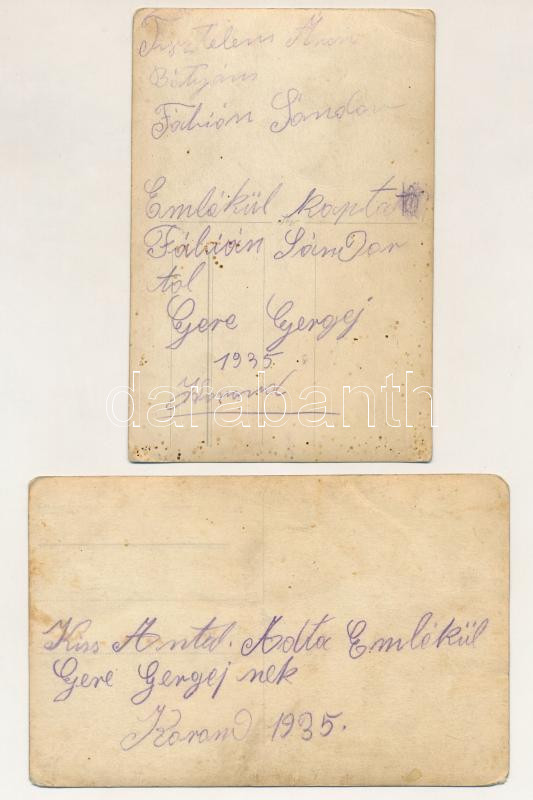 Tisztelem Áron
Bátyám
Fábián Sándor
Emlékül kapta
Fábián Sándor
tól
Gere Gergej
1935
Korond
darabanth
Kiss Antal. Adta Emlékül
Gere Gergej nek
Korond 1935.